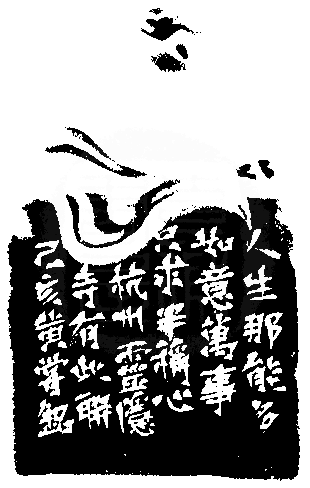 人生那能多
如意萬事
只求半稱心
杭州靈隱
寺有此聯
己亥黃